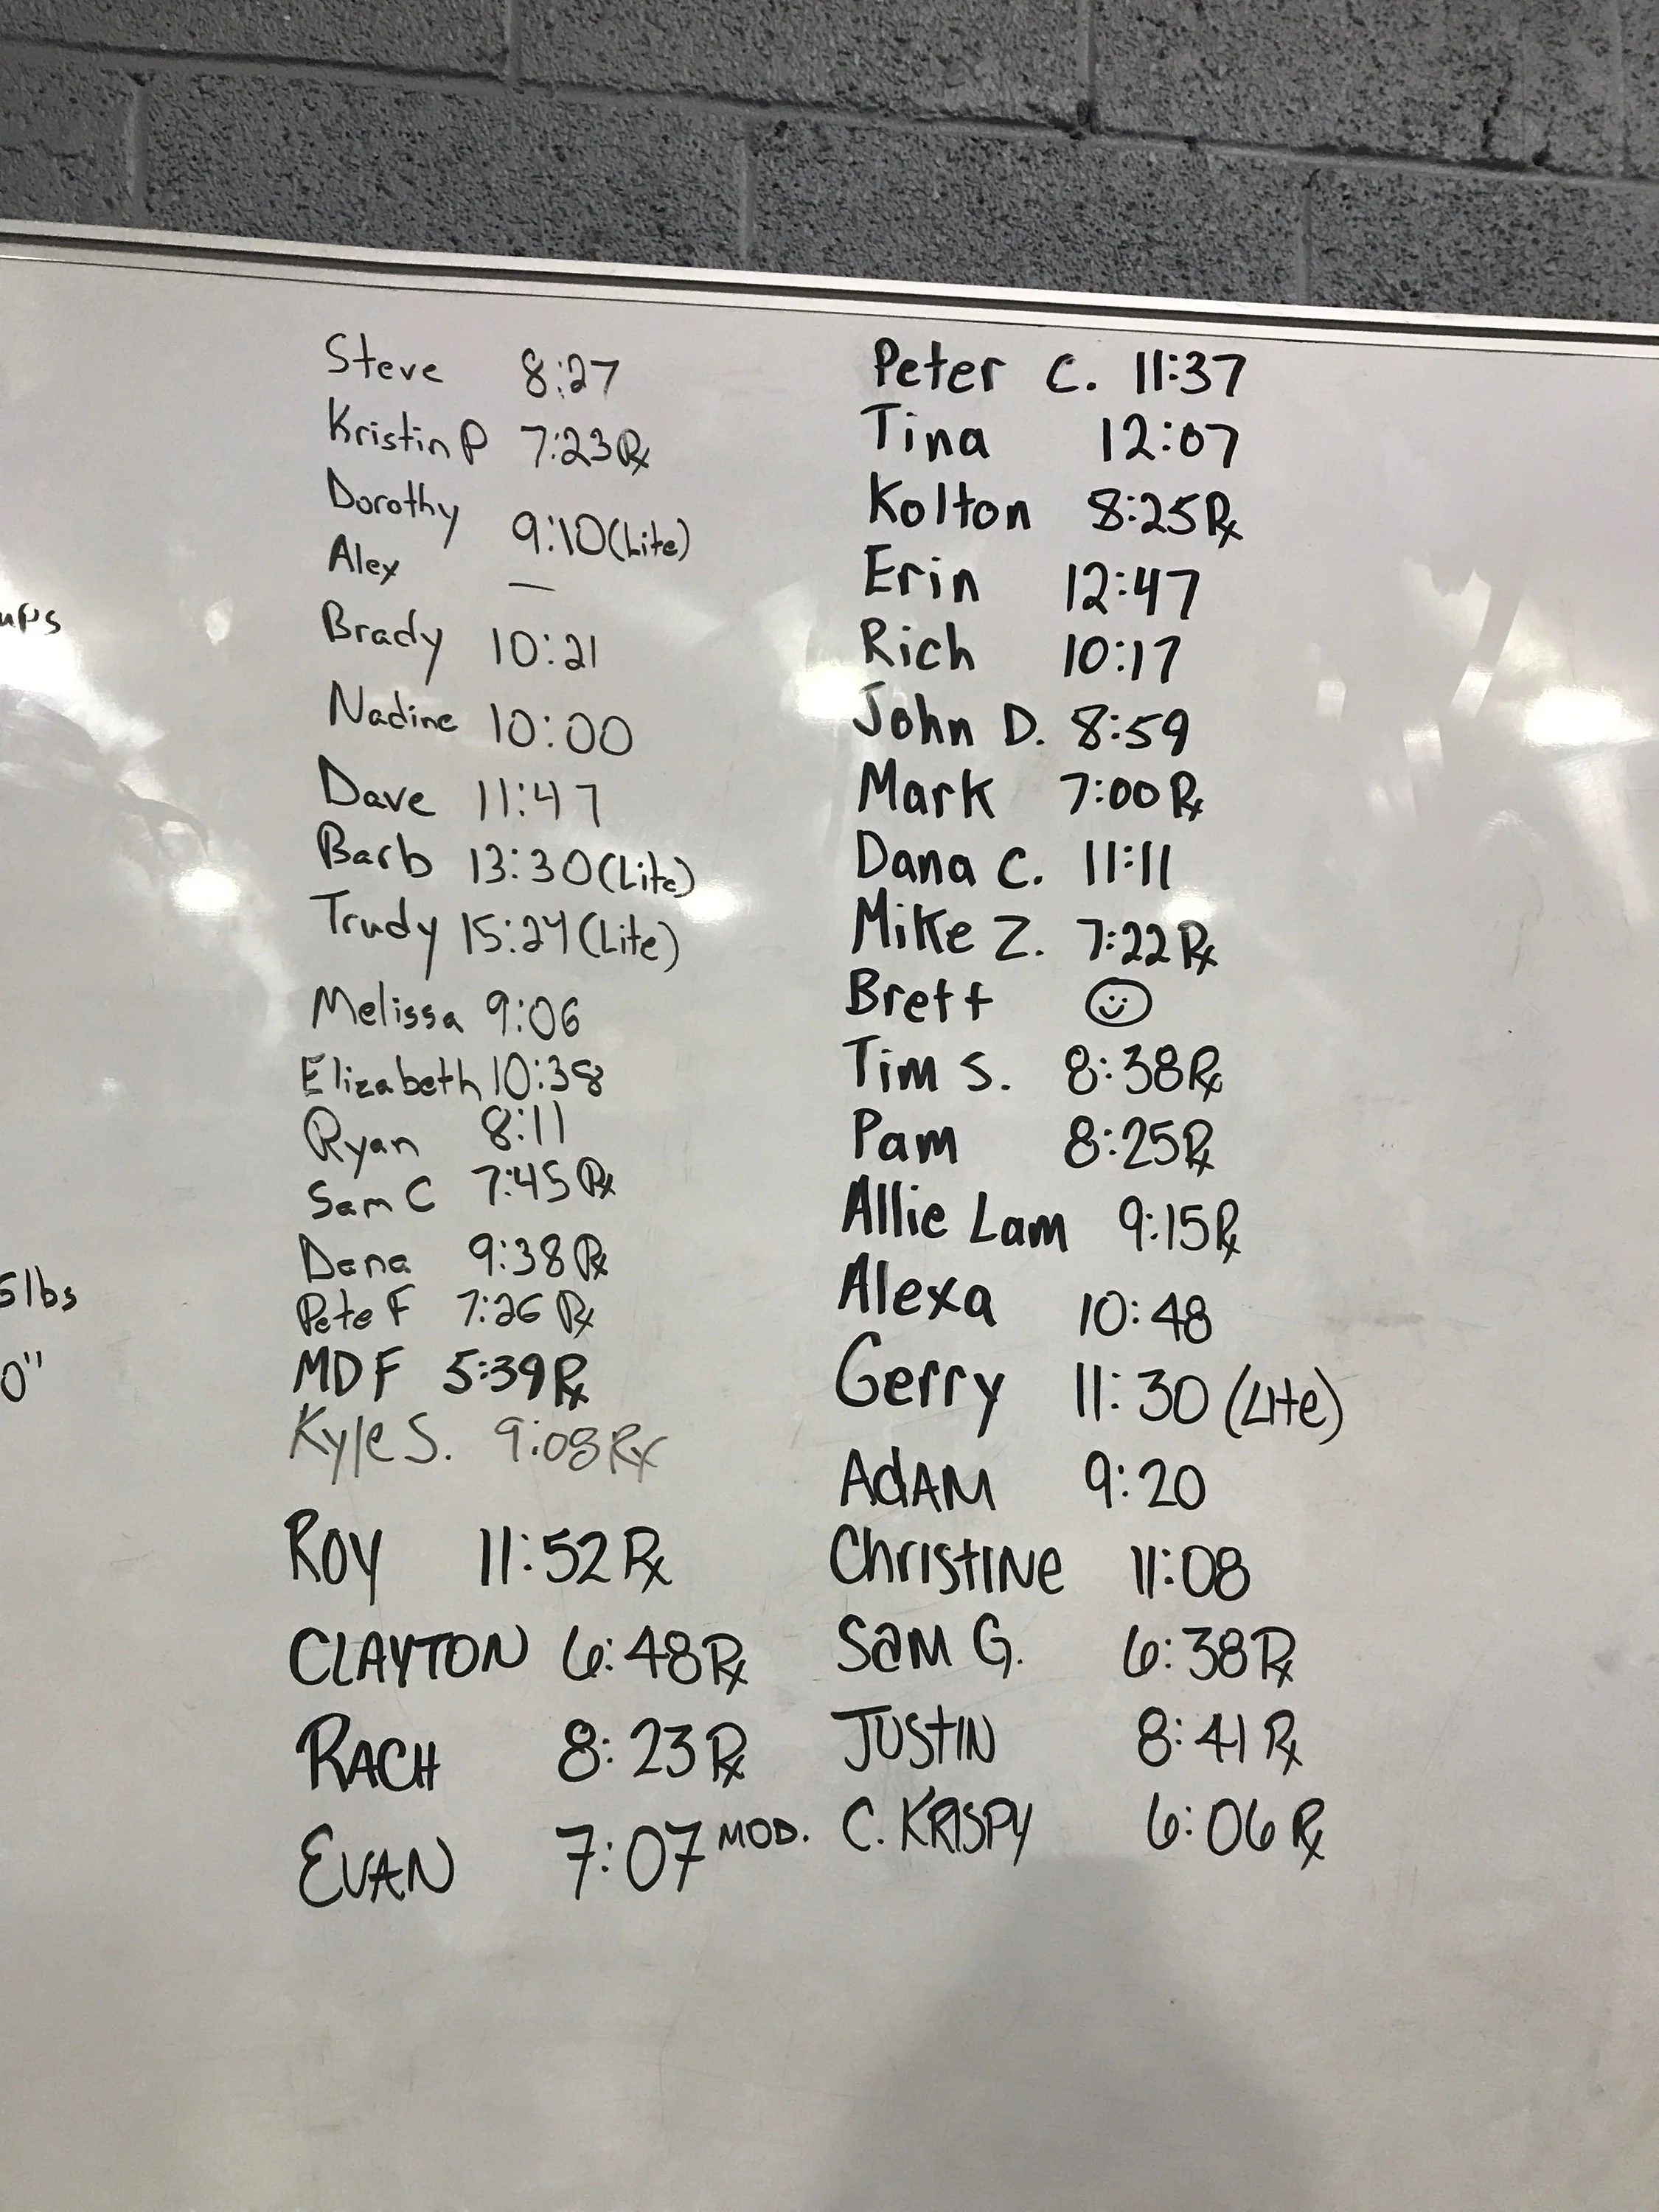 Steve 8:27
Kristin P 7:23 Rx
Dorothy 9:10 (Lite)
Alex —
Brady 10:21
Nadine 10:00
Dave 11:47
Barb 13:30 (Lite)
Trudy 15:24 (Lite)
Melissa 9:06
Elizabeth 10:38
Ryan 8:11
Sam C 7:45 Rx
Dana 9:38 Rx
Pete F 7:26 Rx
MDF 5:39 Rx
Kyle S. 9:08 Rx
ROY 11:52 Rx
CLAYTON 6:48 Rx
RACH 8:23 Rx
EVAN 7:07 MOD.
Peter C. 11:37
Tina 12:07
Kolton 8:25 Rx
Erin 12:47
Rich 10:17
John D. 8:59
Mark 7:00 Rx
Dana C. 11:11
Mike Z. 7:22 Rx
Brett ☺
Tim S. 8:38 Rx
Pam 8:25 Rx
Allie Lam 9:15 Rx
Alexa 10:48
Gerry 11:30 (Lite)
AdAM 9:20
ChristiNe 11:08
SaM G. 6:38 Rx
JUStIN 8:41 Rx
C. KRISPY 6:06 Rx
ups
5lbs
0"